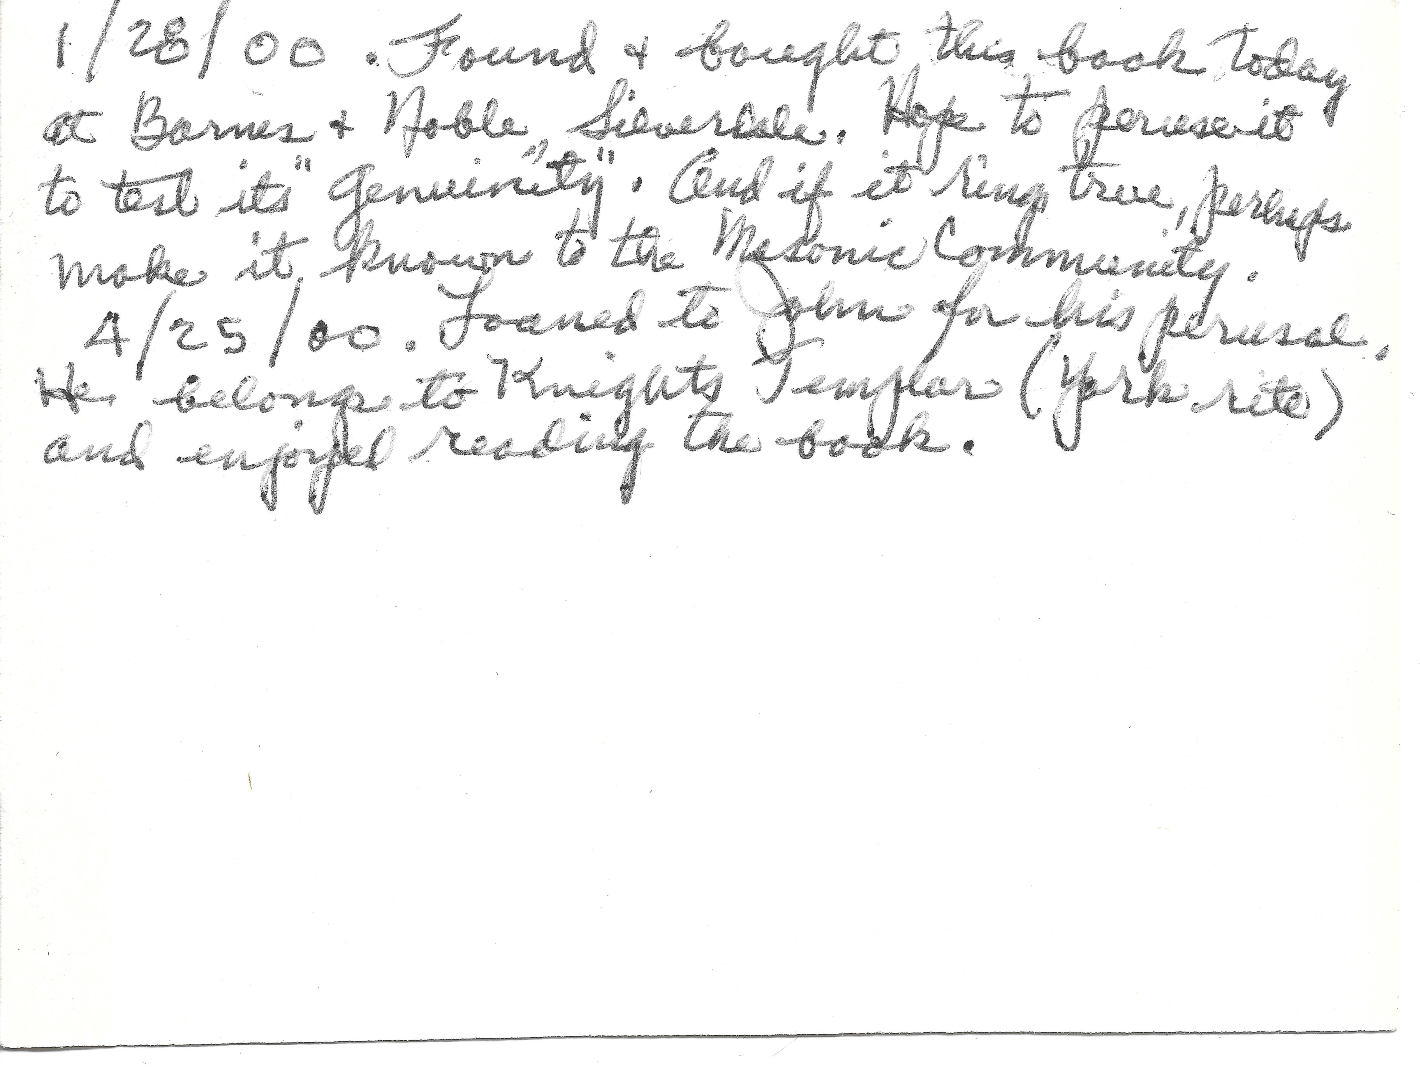 1/28/00. Found & bought this book today
at Barnes & Noble, Silverdale. Hope to peruse it
to test its "Genuinity". And if it rings true, perhaps
make it known to the Masonic Community.
4/25/00. Loaned to John for his perusal.
He belongs to Knights Templar (York rite)
and enjoyed reading the book.